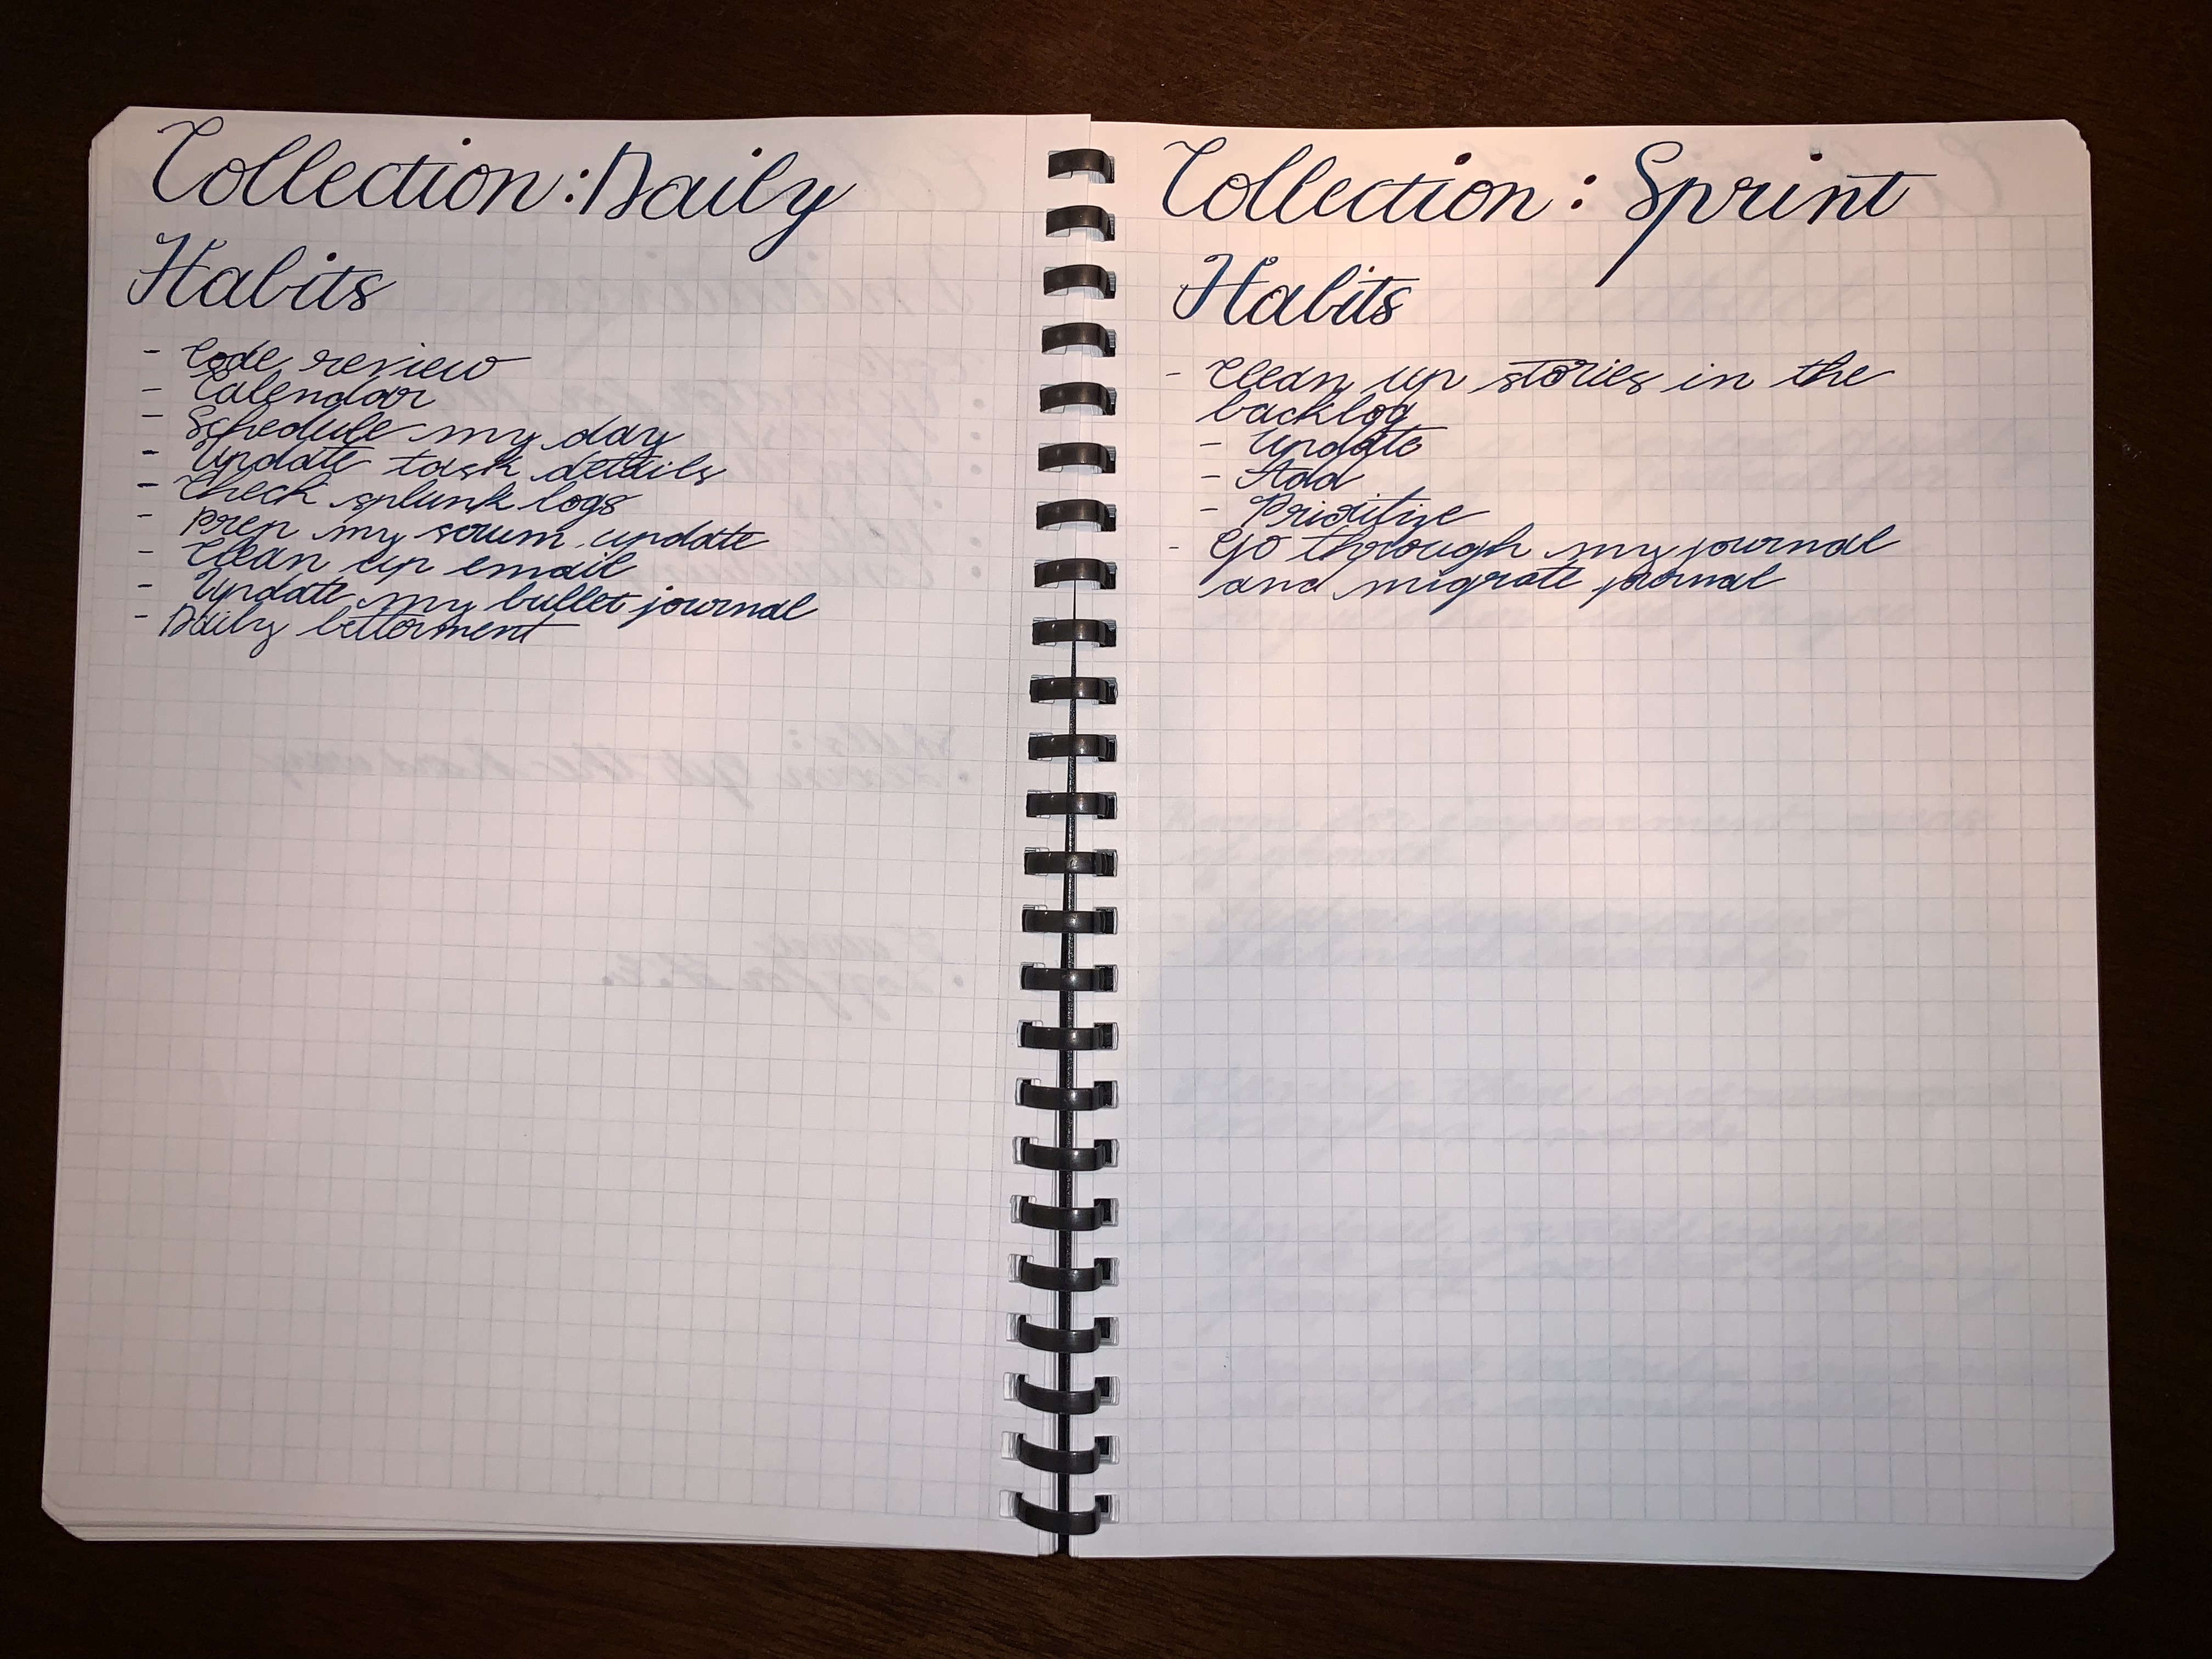 Collection: Daily
Habits
- Code review
- Calendar
- Schedule my day
- Update task details
- Check splunk logs
- Prep my scrum update
- Clean up email
- Update my bullet journal
- Daily betterment
Collection: Sprint
Habits
- Clean up stories in the
backlog
- Update
- Add
- Prioritize
- Go through my journal
and migrate journal